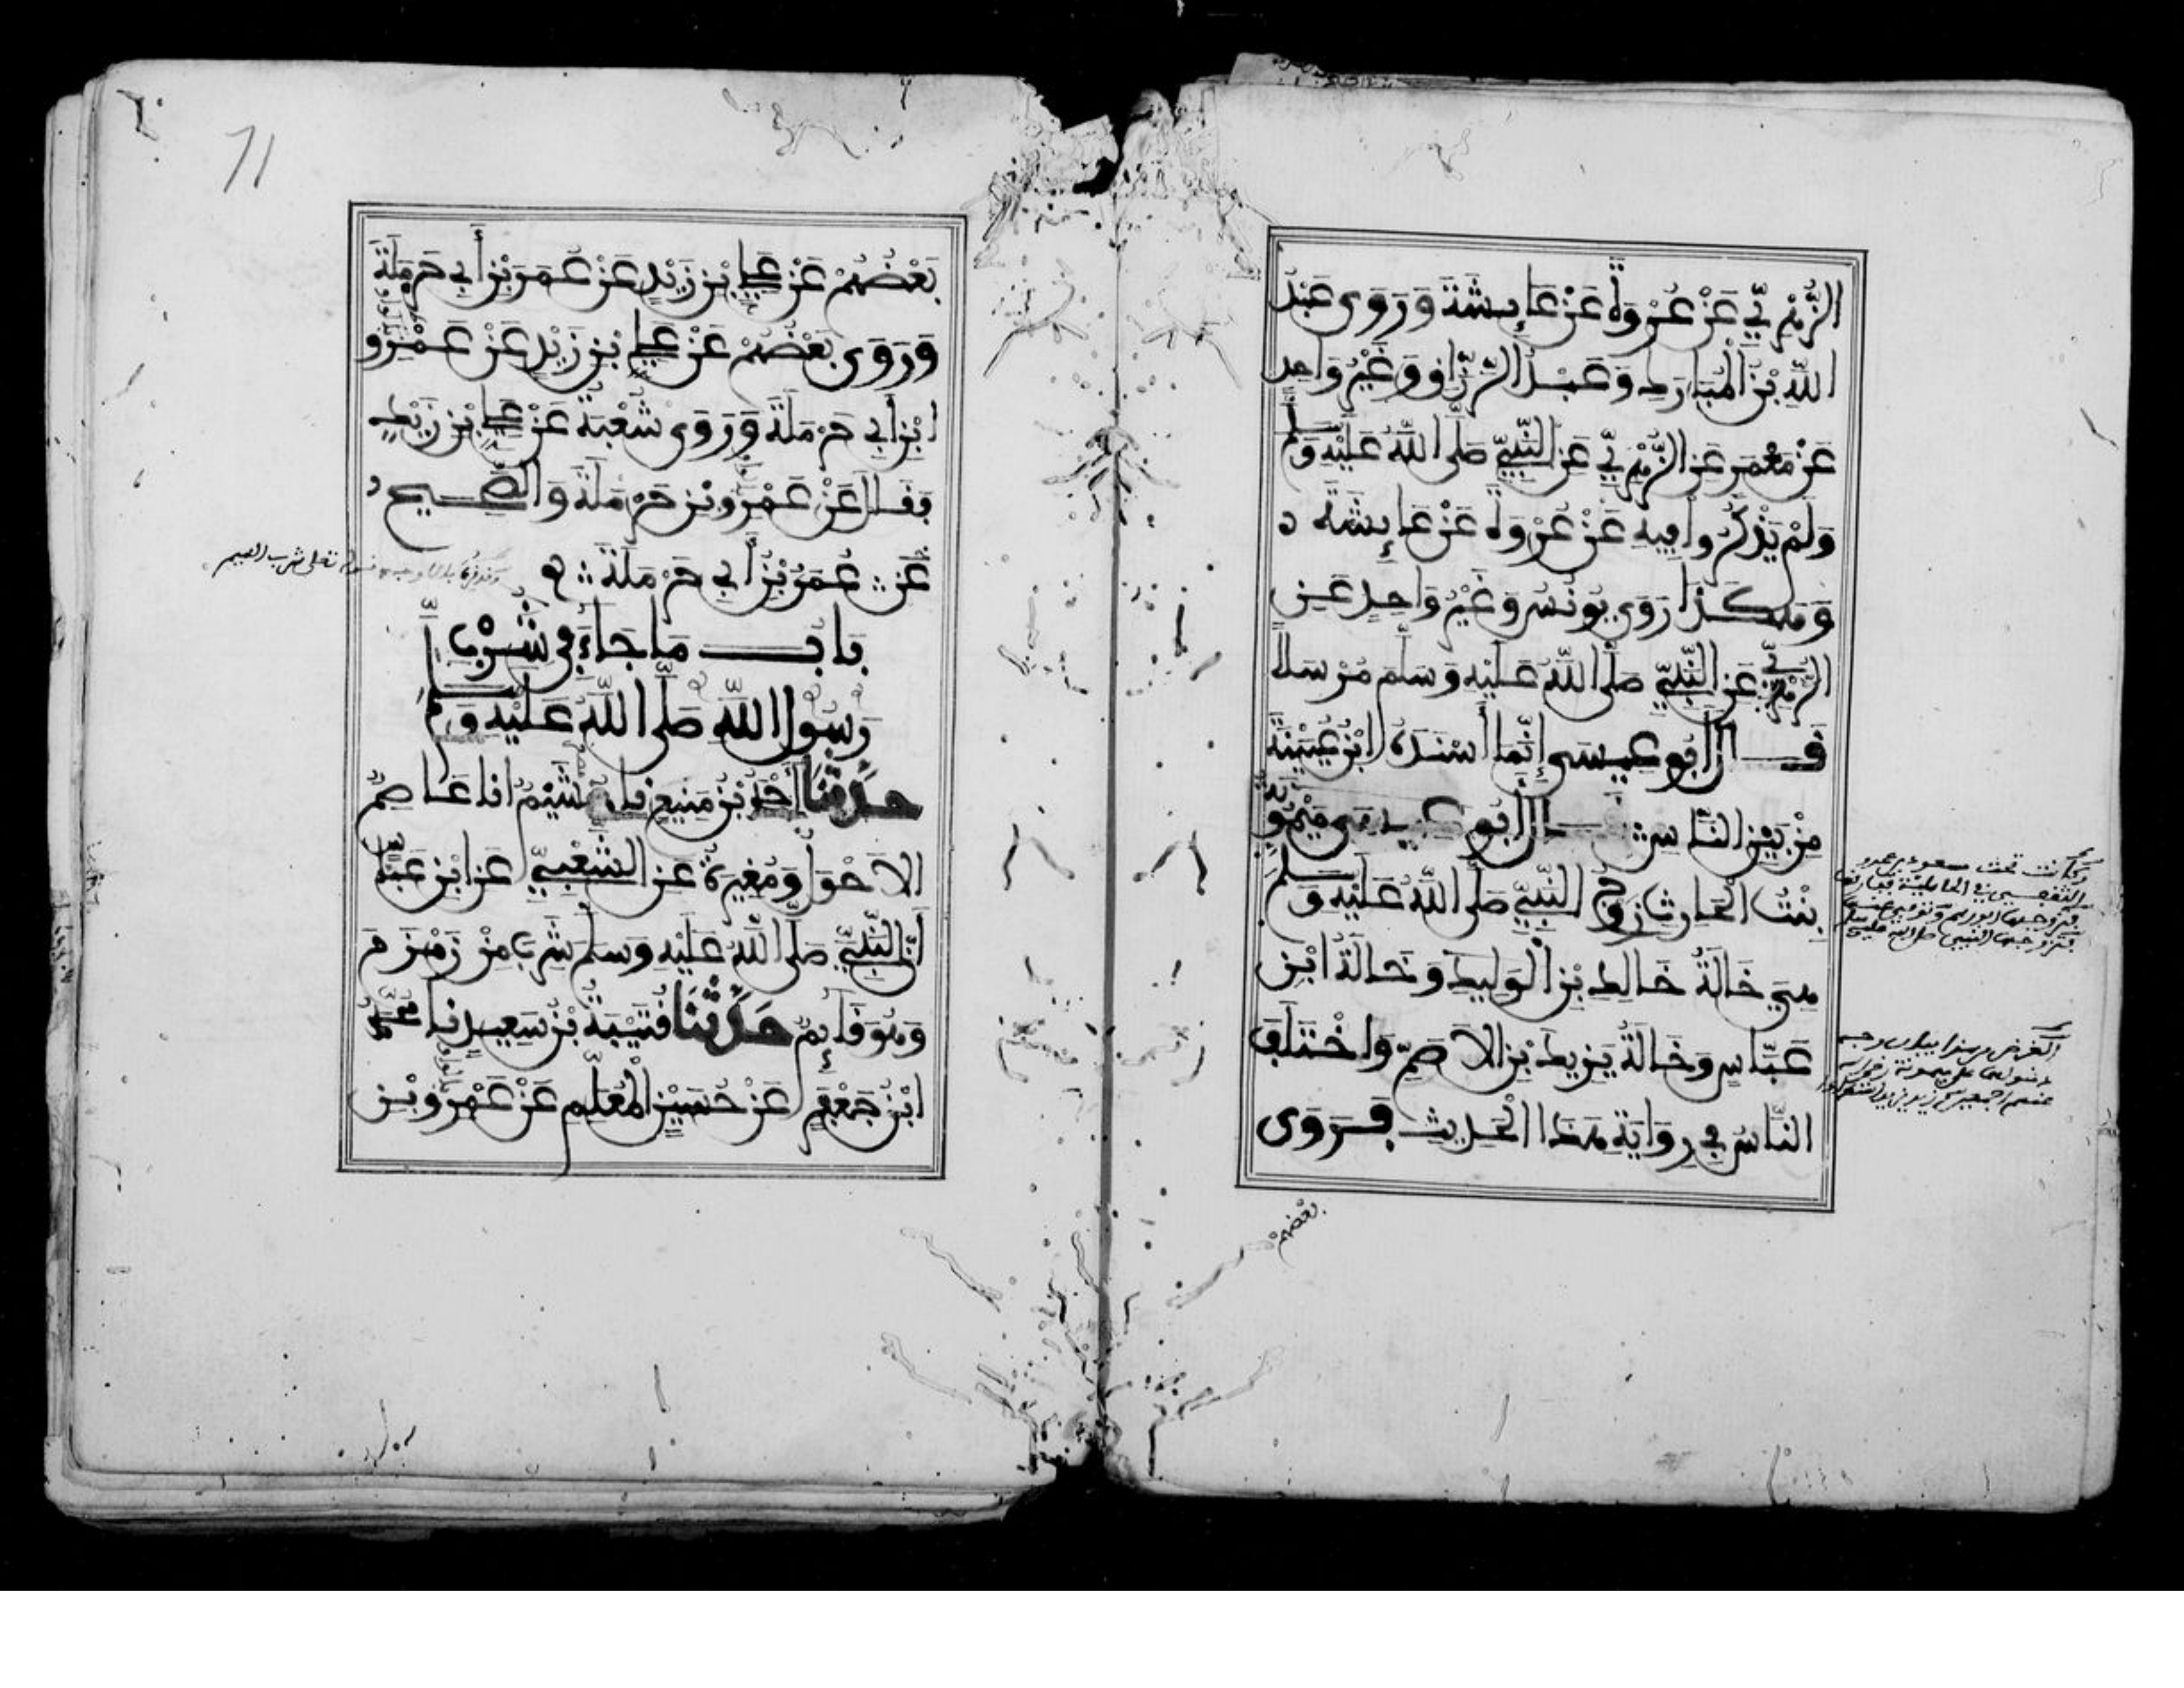 الزُّهْرِيِّ عَنْ عُرْوَةَ عَنْ عَائِشَةَ وَرَوَى عَبْدُ
اللَّهِ بْنُ الْمُبَارَكِ وَعَبْدُ الرَّزَّاقِ وَغَيْرُ وَاحِدٍ
عَنْ مَعْمَرٍ عَنِ الزُّهْرِيِّ عَنِ النَّبِيِّ صَلَّى اللَّهُ عَلَيْهِ وَسَلَّمَ
وَلَمْ يَذْكُرُوا فِيهِ عَنْ عُرْوَةَ عَنْ عَائِشَةَ
وَهَكَذَا رَوَى يُونُسُ وَغَيْرُ وَاحِدٍ عَنِ
الزُّهْرِيِّ عَنِ النَّبِيِّ صَلَّى اللَّهُ عَلَيْهِ وَسَلَّمَ مُرْسَلًا
قَالَ أَبُو عِيسَى إِنَّمَا أَسْنَدَهُ ابْنُ عُيَيْنَةَ
مِنْ بَيْنِ النَّاسِ قَالَ أَبُو عِيسَى مَيْمُونَةُ
بِنْتُ الْحَارِثِ زَوْجُ النَّبِيِّ صَلَّى اللَّهُ عَلَيْهِ وَسَلَّمَ
هِيَ خَالَةُ خَالِدِ بْنِ الْوَلِيدِ وَخَالَةُ ابْنِ
عَبَّاسٍ وَخَالَةُ يَزِيدَ بْنِ الْأَصَمِّ وَاخْتَلَفَ
النَّاسُ فِي رِوَايَةِ هَذَا الْحَدِيثِ فَرَوَى
بعضهم
وكانت تحت مسعود بن عمرو
الثقفي في الجاهلية ففارقها
فتزوجها ابو رهم وتوفي عنها
فتزوجها النبي صلى الله عليه وسلم
71
بَعْضُهُمْ عَنْ عَلِيِّ بْنِ زَيْدٍ عَنْ عُمَرَ بْنِ أَبِي حَرْمَلَةَ
وَرَوَى بَعْضُهُمْ عَنْ عَلِيِّ بْنِ زَيْدٍ عَنْ عَمْرِو
ابْنِ أَبِي حَرْمَلَةَ وَرَوَى شُعْبَةُ عَنْ عَلِيِّ بْنِ زَيْدٍ
فَقَالَ عَنْ عَمْرِو بْنِ حَرْمَلَةَ وَالصَّحِيحُ
عَنْ عُمَرَ بْنِ أَبِي حَرْمَلَةَ
بَابُ مَا جَاءَ فِي شُرْبِ
رَسُولِ اللَّهِ صَلَّى اللَّهُ عَلَيْهِ وَسَلَّمَ
حَدَّثَنَا أَحْمَدُ بْنُ مَنِيعٍ نا هُشَيْمٌ انا عَاصِمٌ
الأَحْوَلُ وَمُغِيرَةُ عَنِ الشَّعْبِيِّ عَنِ ابْنِ عَبَّاسٍ
أَنَّ النَّبِيَّ صَلَّى اللَّهُ عَلَيْهِ وَسَلَّمَ شَرِبَ مِنْ زَمْزَمَ
وَهُوَ قَائِمٌ حَدَّثَنَا قُتَيْبَةُ بْنُ سَعِيدٍ نا مُحَمَّدُ
ابْنُ جَعْفَرٍ عَنْ حُسَيْنٍ الْمُعَلِّمِ عَنْ عَمْرِو بْنِ